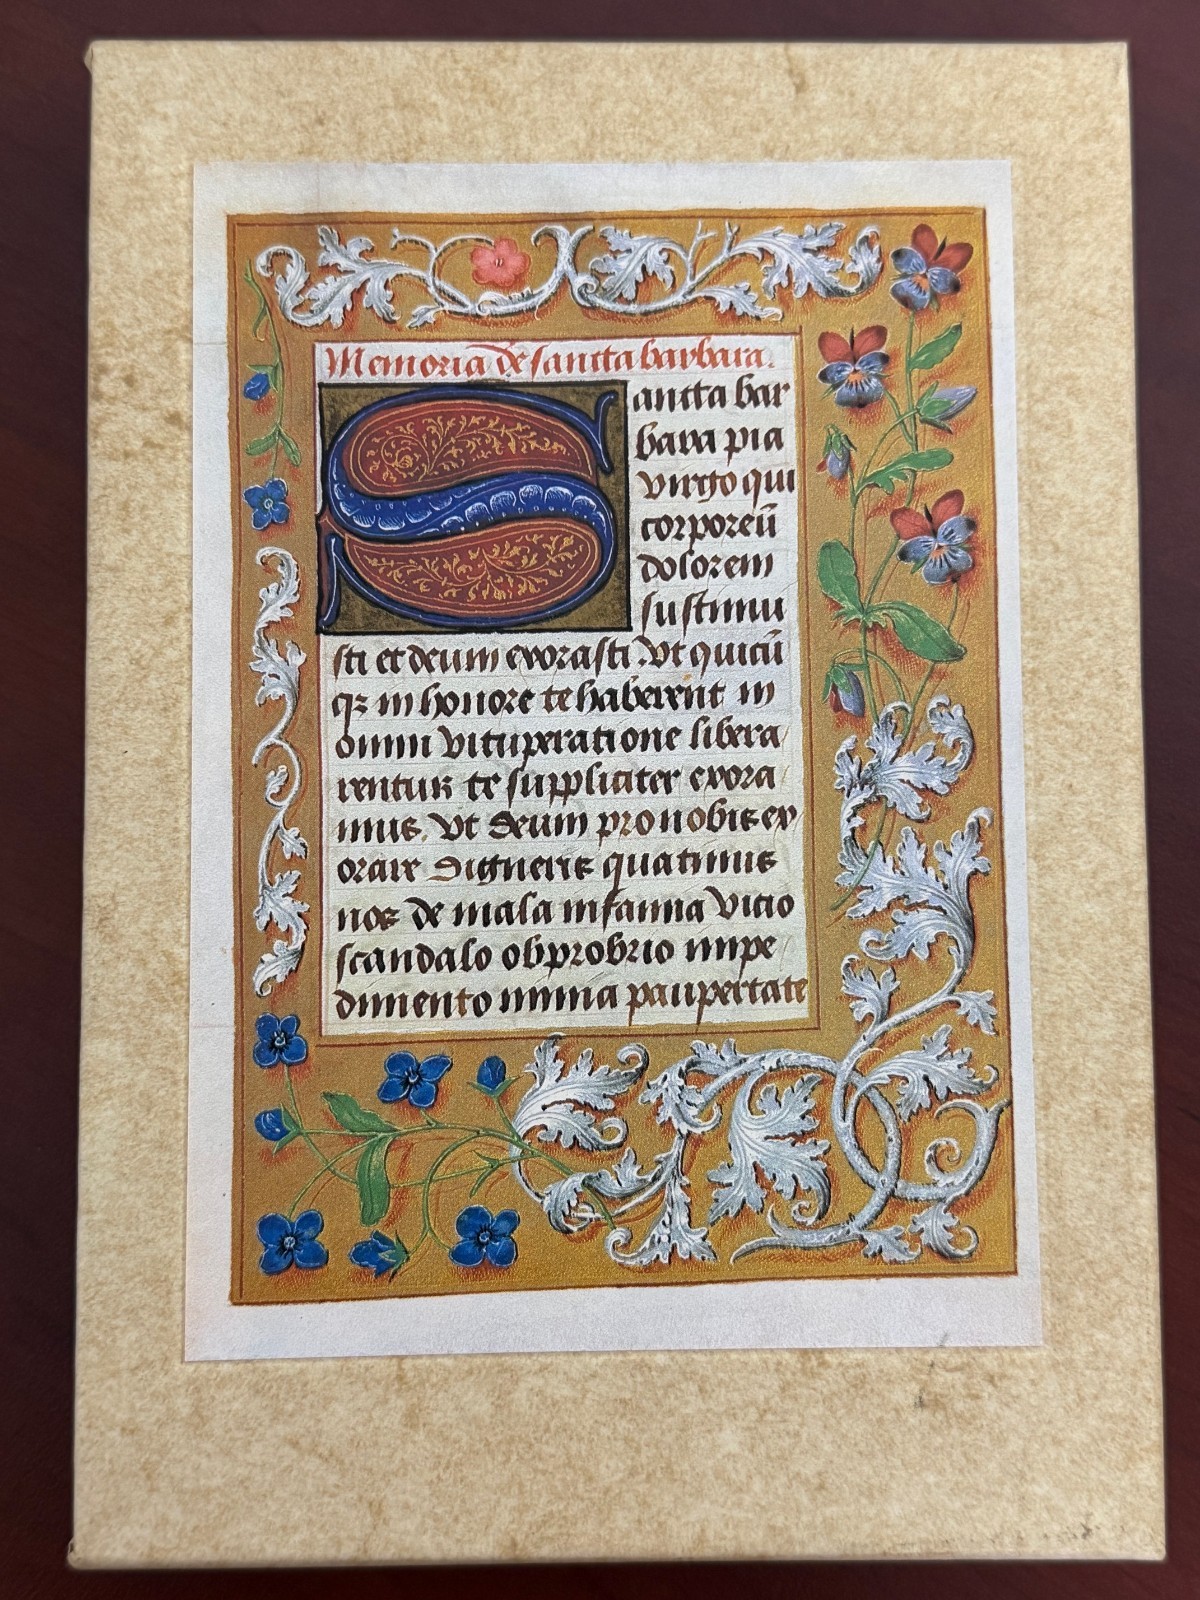 Memoria de sancta barbara.
Sancta bar
bara pia
virgo qui
corporeū
dolorem
sustinui
sti et deum exorasti. Vt quicū
qꝫ in honore te haberent in
omni vituperatione libera
rentur te suppliciter exora
mus. Vt deum pro nobis ex
orare digneris quatinus
nos de mala infamia vicio
scandalo obprobrio impe
dimento nimia paupertate